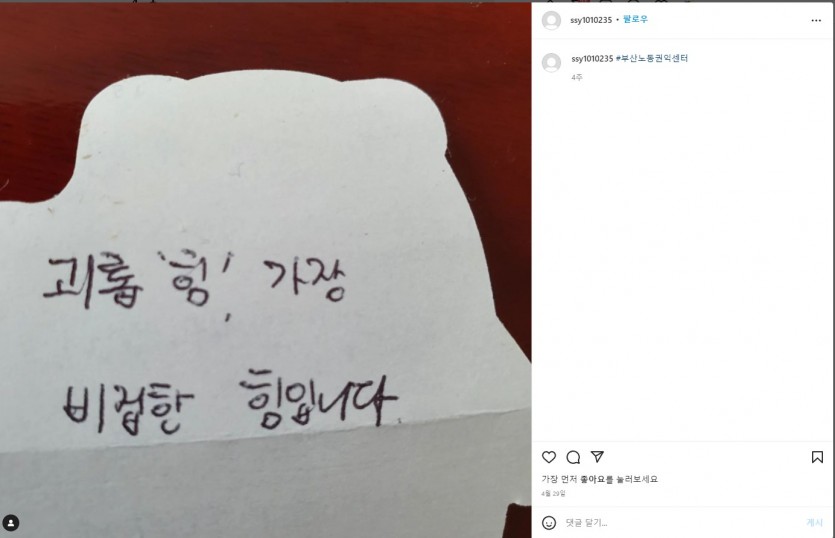 괴롭'힘', 가장
비겁한 힘입니다.
ssy1010235 • 팔로우
ssy1010235 #부산노동권익센터
4주
가장 먼저 좋아요를 눌러보세요
4월 29일
댓글 달기...
게시